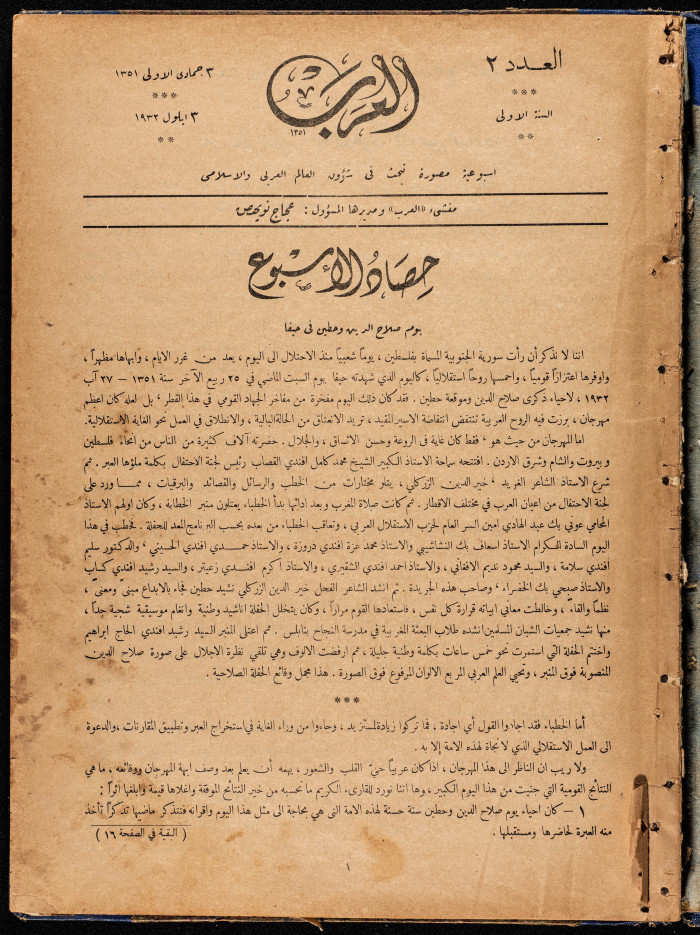 العدد ٢
***
السنة الاولى
**
العرب
١٣٥١
٣ جمادى الاولى ١٣٥١
***
٣ ايلول ١٩٣٢
**
اسبوعية مصورة تبحث في شؤون العالم العربي والاسلامي
منشىء «العرب» ومديرها المسؤول : عجاج نويهض
حصاد الأسبوع
يوم صلاح الدين وحطين في حيفا
اننا لا نذكر أن رأت سورية الجنوبية المسماة بفلسطين ، يوماً شعبياً منذ الاحتلال الى اليوم ، يعد من غرر الايام ، وابهاها مظهراً ،
واوفرها اعتزازاً قومياً ، واحمسها روحاً استقلالياً ، كاليوم الذي شهدته حيفا يوم السبت الماضي في ٢٥ ربيع الآخر سنة ١٣٥١ – ٢٧ آب
١٩٣٢ ، لاحياء ذكرى صلاح الدين وموقعة حطين . فقد كان ذلك اليوم مفخرة من مفاخر الجهاد القومي في هذا القطر ، بل لعله كان اعظم
مهرجان ، برزت فيه الروح العربية تنتفض انتفاضة الاسير المقيد ، تريد الانعتاق من الحالة البالية ، والانطلاق في العمل نحو الغاية الاستقلالية.
اما المهرجان من حيث هو ، فقط كان غاية في الروعة وحسن الاتساق ، والجلال . حضرته آلاف كثيرة من الناس من انحاء فلسطين
و بيروت والشام وشرق الاردن . افتتحه سماحة الاستاذ الكبير الشيخ محمد كامل افندي القصاب رئيس لجنة الاحتفال بكلمة ملؤها العبر . ثم
شرع الاستاذ الشاعر الغريد ، خير الدين الزركلي ، يتلو مختارات من الخطب والرسائل والقصائد والبرقيات ، مما ورد على
لجنة الاحتفال من اعيان العرب في مختلف الاقطار . ثم كانت صلاة المغرب وبعد ادائها بدأ الخطباء يعتلون منبر الخطابة ، وكان اولهم الاستاذ
المحامي عوني بك عبد الهادي امين السر العام لحزب الاستقلال العربي ، وتعاقب الخطباء من بعده بحسب البرنامج المعد للحفلة . فخطب في هذا
اليوم السادة الكرام الاستاذ اسعاف بك النشاشيبي والاستاذ محمد عزة افندي دروزة ، والاستاذ حمدي افندي الحسيني ، والدكتور سليم
افندي سلامة ، والسيد محمود نديم الافغاني ، والاستاذ احمد افندي الشقيري ، والاستاذ اكرم افندي زعيتر ، والسيد رشيد افندي
والاستاذ صبحي بك الخضراء ، وصاحب هذه الجريدة . ثم انشد الشاعر الفحل خير الدين الزركلي نشيد حطين فجاء بالابداع مبنىً ومعنىً ،
نظماً والقاءً ، وخالطت معاني ابياته قرارة كل نفس ، فاستعادها القوم مراراً ، وكان يتخلل الحفلة اناشيد وطنية وانغام موسيقية شجية جداً ،
منها نشيد جمعيات الشبان المسلمين انشده طلاب البعثة المغربية في مدرسة النجاح بنابلس . ثم اعتلى المنبر السيد رشيد افندي الحاج ابراهيم
واختتم الحفلة التي استمرت نحو خمس ساعات بكلمة وطنية جليلة ، ثم ارفضت الالوف وهي تلقي نظرة الاجلال على صورة صلاح الدين
المنصوبة فوق المنبر ، وتحيي العلم العربي المربع الالوان المرفوع فوق الصورة . هذا مجمل وقائع الحفلة الصلاحية .
***
أما الخطباء فقد اجادوا القول أي اجادة ، فما تركوا زيادة لمستزيد ، وجاءوا من وراء الغاية في استخراج العبر وتطبيق المقارنات ، والدعوة
الى العمل الاستقلالي الذي لا نجاة لهذه الامة إلا به .
ولا ريب ان الناظر الى هذا المهرجان ، اذا كان عربياً حيّ القلب والشعور ، يهمه أن يعلم بعد وصف ابهة المهرجان ووقائعه ، ما هي
النتائج القومية التي جنيت من هذا اليوم الكبير ، وها اننا نورد للقارىء الكريم ما نحسبه من خير النتائج الموفقة واغلاها قيمة وابلغها اثراً :
١ – كان احياء يوم صلاح الدين وحطين سنة حسنة لهذه الامة التي هي بحاجة الى مثل هذا اليوم واقرانه فتتذكر ماضيها تذكراً تأخذ
منه العبرة لحاضرها ومستقبلها .
( البقية في الصفحة ١٦ )
١